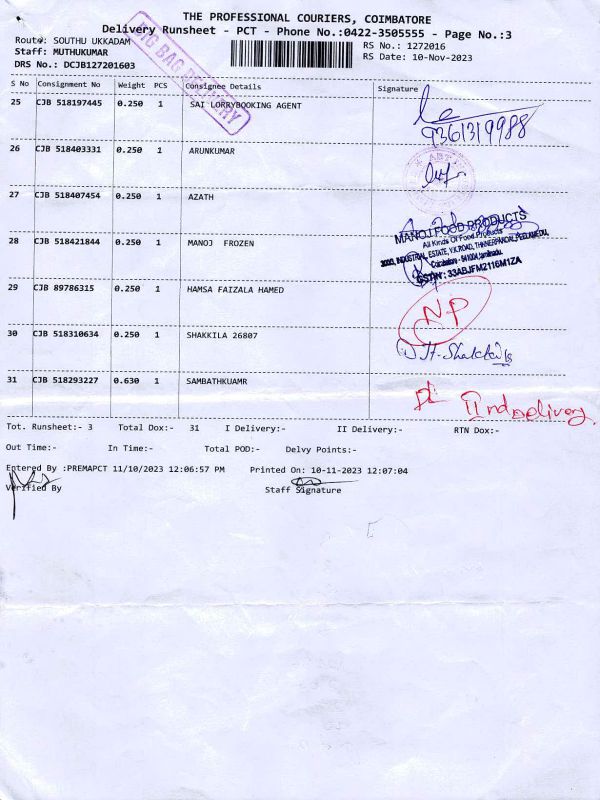 THE PROFESSIONAL COURIERS, COIMBATORE
Delivery Runsheet - PCT - Phone No.:0422-3505555 - Page No.:3
Route: SOUTHU UKKADAM
RS No.: 1272016
Staff: MUTHUKUMAR
RS Date: 10-Nov-2023
DRS No.: DCJB127201603
BIG BAG DELIVERY
S No Consignment No Weight PCS Consignee Details Signature
25 CJB 518197445 0.250 1 SAI LORRYBOOKING AGENT
9361319988
26 CJB 518403331 0.250 1 ARUNKUMAR
27 CJB 518407454 0.250 1 AZATH
MANOJ FOOD PRODUCTS
All Kinds Of Food Products
INDUSTRIAL ESTATE, V.K.ROAD,
Coimbatore - 641004,
GSTIN : 33ABJFM2116M1ZA
28 CJB 518421844 0.250 1 MANOJ FROZEN
29 CJB 89786315 0.250 1 HAMSA FAIZALA HAMED
NP
30 CJB 518310634 0.250 1 SHAKKILA 26807
31 CJB 518293227 0.630 1 SAMBATHKUAMR
IIndDelivery
Tot. Runsheet:- 3 Total Dox:- 31 I Delivery:- II Delivery:- RTN Dox:-
Out Time:- In Time:- Total POD:- Delvy Points:-
Entered By :PREMAPCT 11/10/2023 12:06:57 PM Printed On: 10-11-2023 12:07:04
Verified By Staff Signature